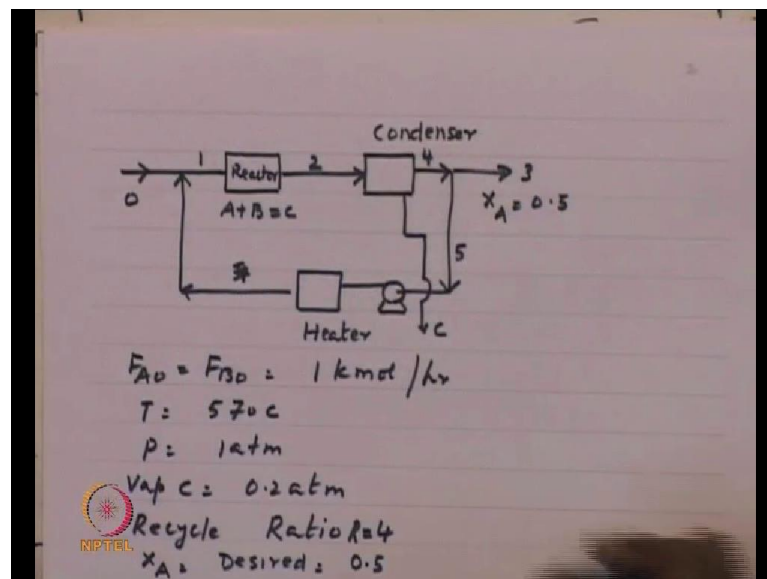 Condenser
0
1
Reactor
2
4
3
A+B=C
X_A = 0.5
5
Heater
C
F_A0 = F_B0 = 1 kmol/hr
T: 570 C
P: 1 atm
Vap C = 0.2 atm
Recycle Ratio R=4
X_A = Desired = 0.5
NPTEL